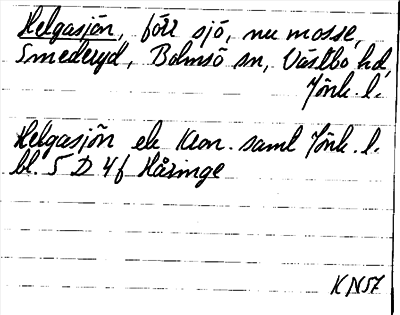 Helgasjön, förr sjö, nu mosse,
Smederyd, Bolmsö sn, Västbo hd,
Jönk. l.
Helgasjön ek Kon. saml Jönk. l.
bl. 5 D 4f Håringe
KN57